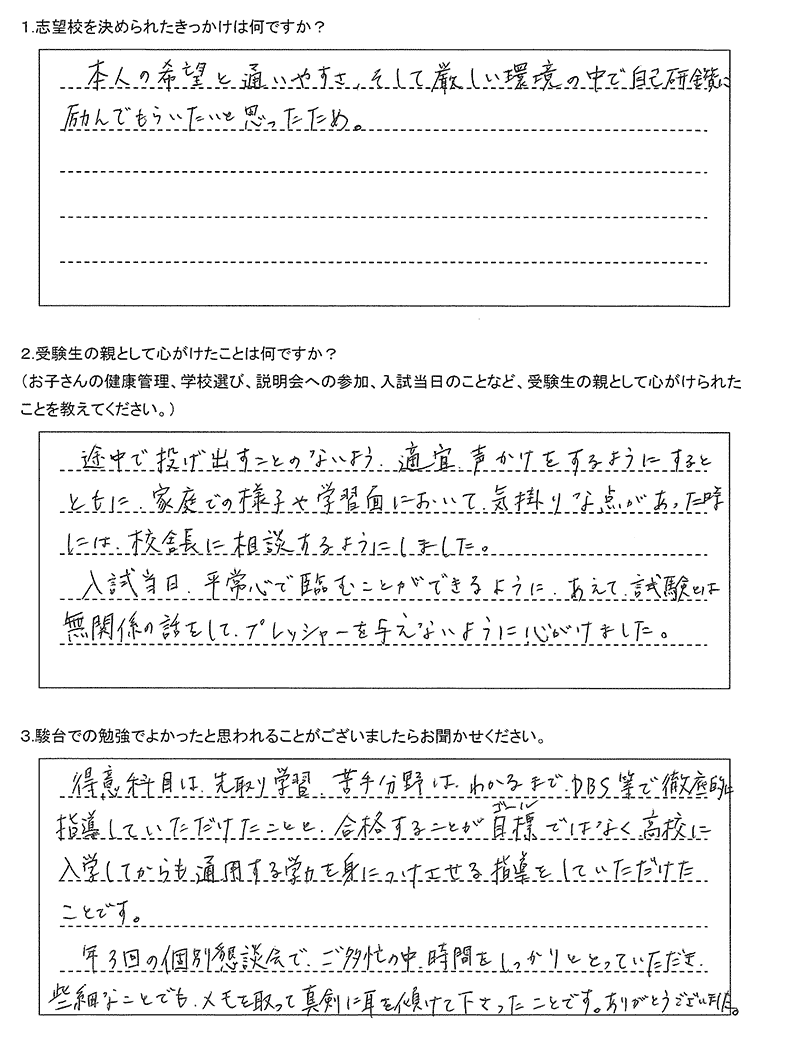 1.志望校を決められたきっかけは何ですか？
本人の希望と通いやすさ、そして厳しい環境の中で自己研鑽に
励んでもらいたいと思ったため。
2.受験生の親として心がけたことは何ですか？
（お子さんの健康管理、学校選び、説明会への参加、入試当日のことなど、受験生の親として心がけられた
ことを教えてください。）
途中で投げ出すことのないよう、適宜、声かけをするようにすると
ともに、家庭での様子や学習面において、気掛りな点があった時
には、校舎長に相談するようにしました。
入試当日、平常心で臨むことができるように、あえて、試験とは
無関係の話をして、プレッシャーを与えないように心がけました。
3.駿台での勉強でよかったと思われることがございましたらお聞かせください。
得意科目は、先取り学習、苦手分野は、わかるまで、DBS等で徹底的に
ゴール
指導していただけたことと、合格することが目標ではなく高校に
入学してからも通用する学力を身につけさせる指導をしていただけた
ことです。
年3回の個別懇談会で、ご多忙の中、時間をしっかりととっていただき、
些細なことでも、メモを取って真剣に耳を傾けて下さったことです。ありがとうございました。